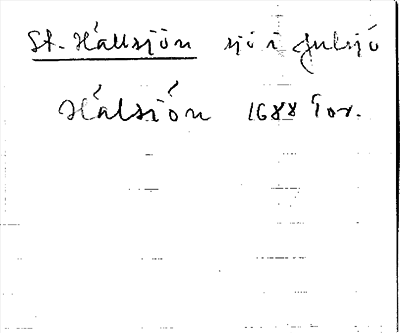 St. Hällsjön sjö i Gulsjö
Hålsiön 1688 Tor.